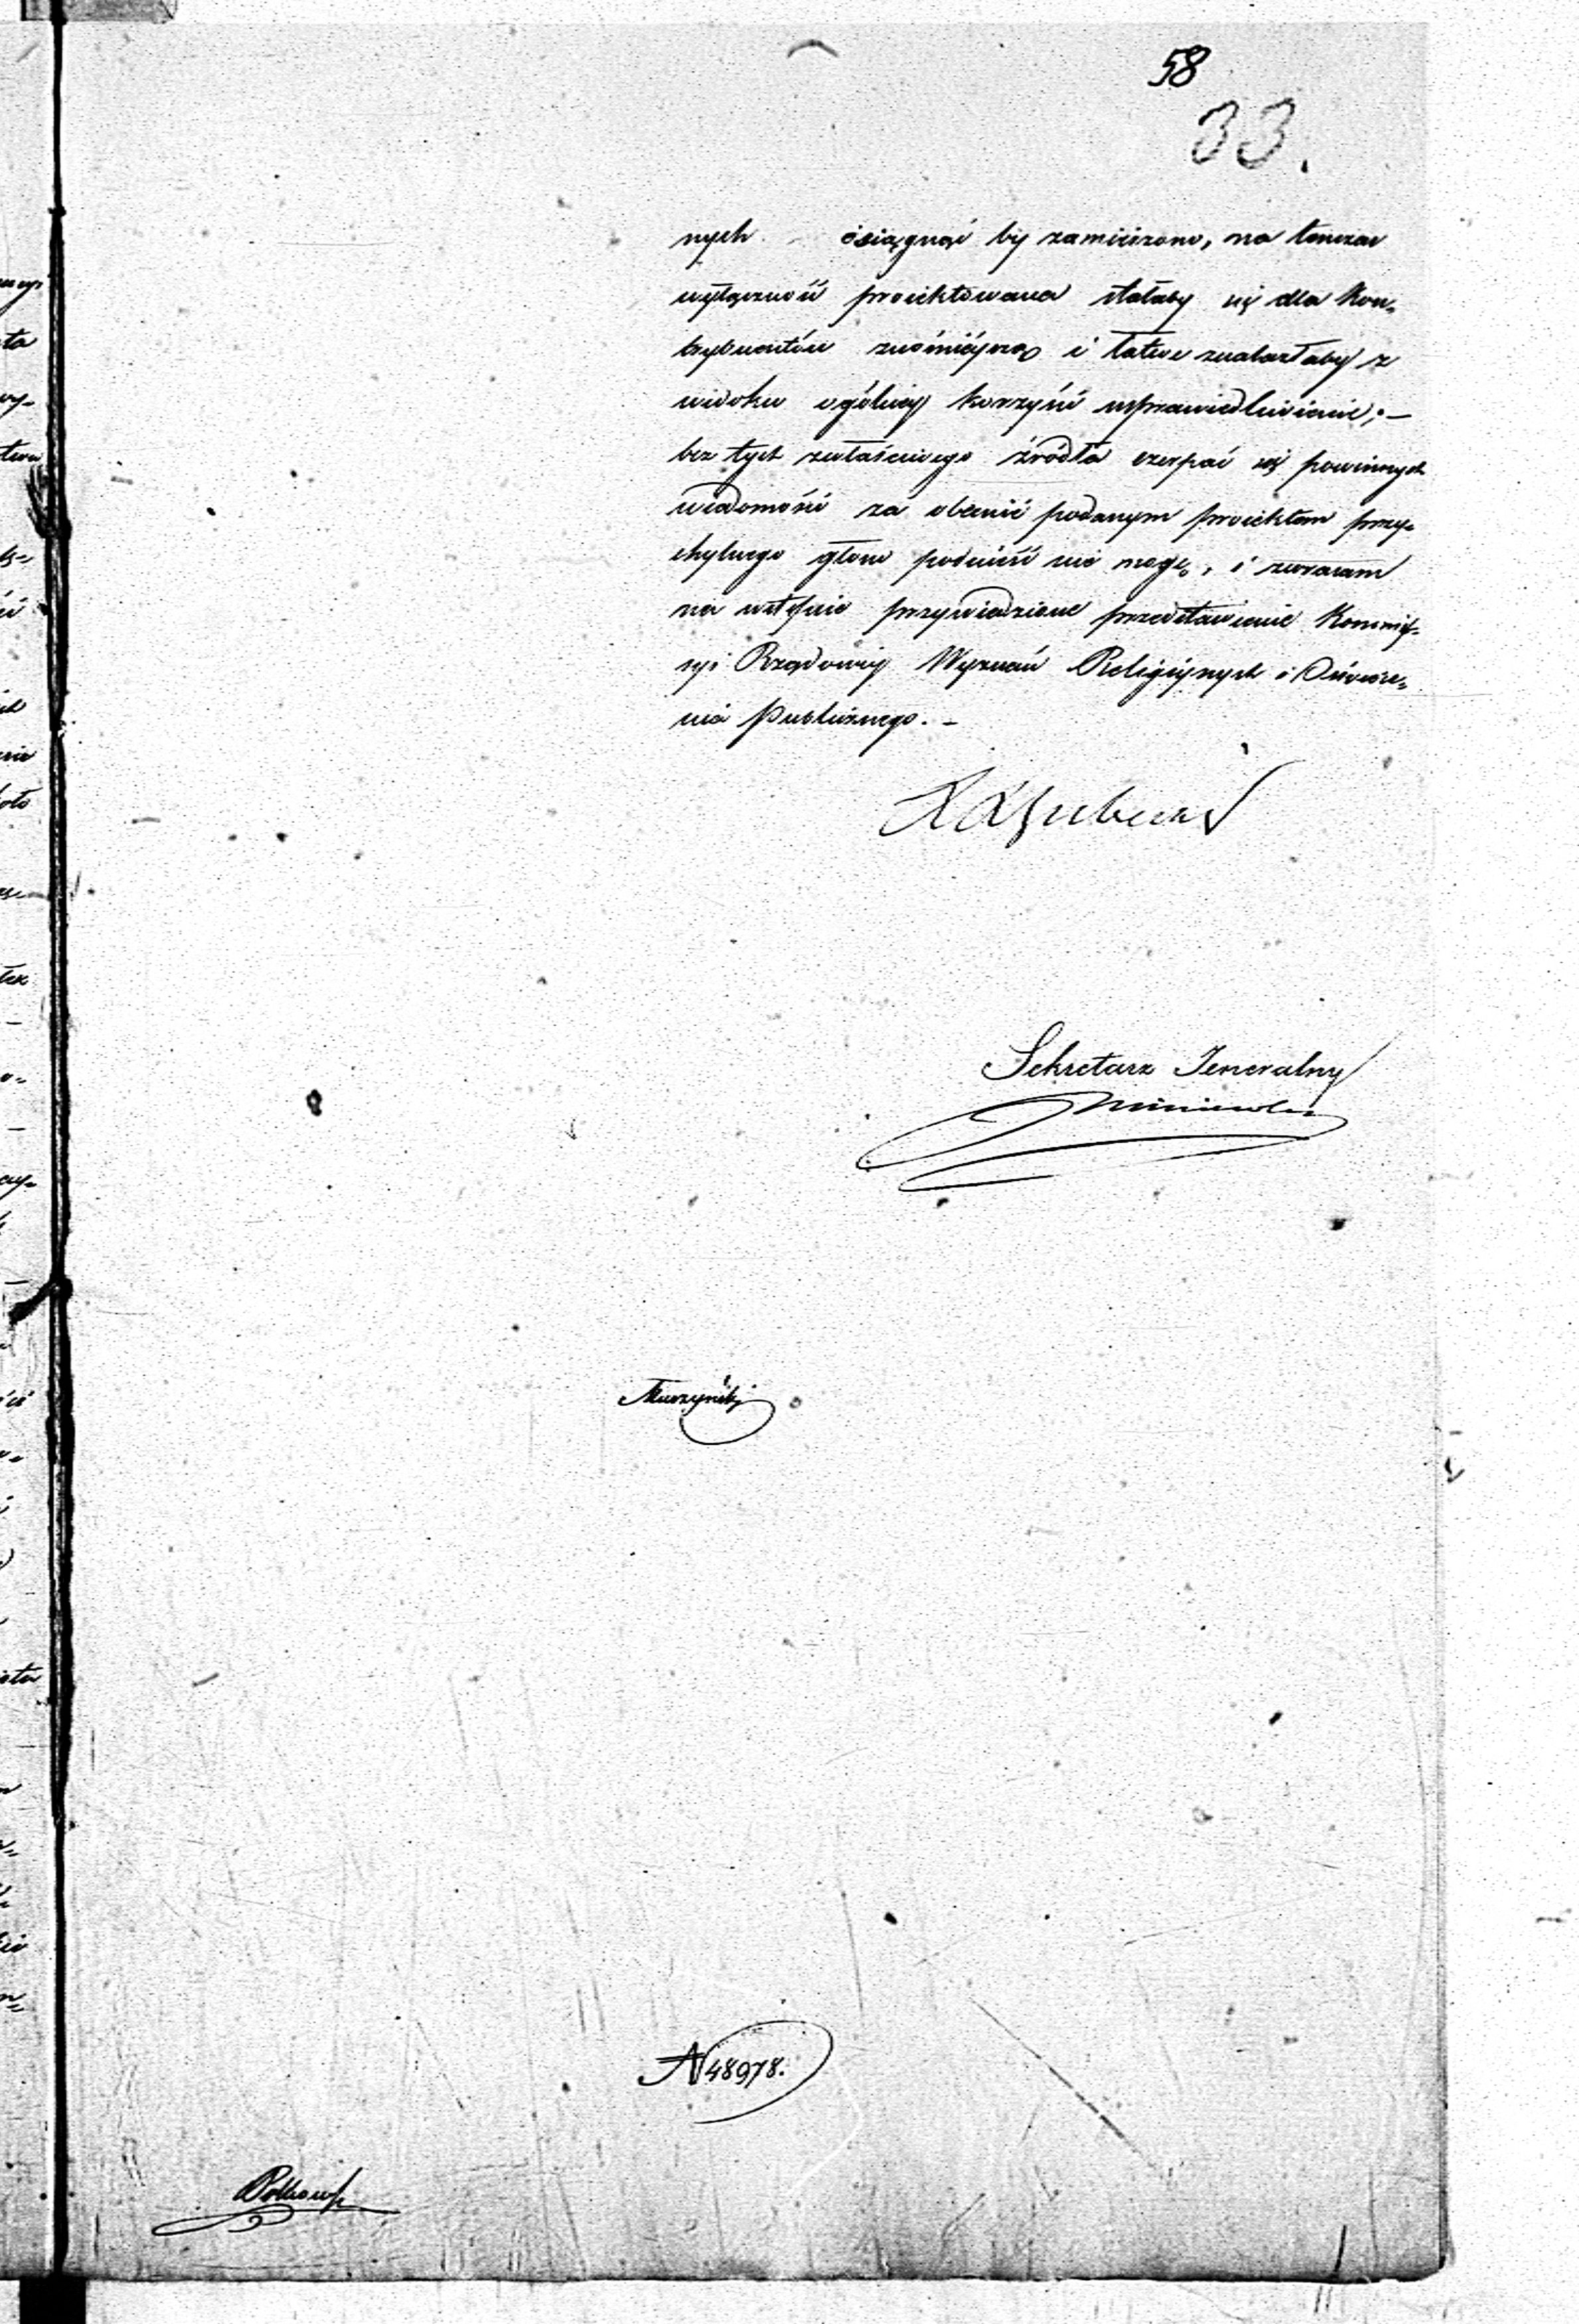 58
33.
nych osiągnąć by zamierzono, na tenczas
wyłączność proiektowana stałaby się dla Kon„
trybuentów znośnieyszą i łatwe znalazłaby z
widoku ogólney korzyści usprawiedliwienie; —
bez tych zwłaściwego źródła czerpać się powinnych
wiadomości za obecnie podanym proiektem przy„
chylnego głosu podnieść nie mogę, i zwracam
na wstępie przywiedzione przedstawienie Kommis„
syi Rządowey Wyznań Religiynych i Oświece„
nia Publicznego. —
Sekretarz Jeneralny
N 48978.